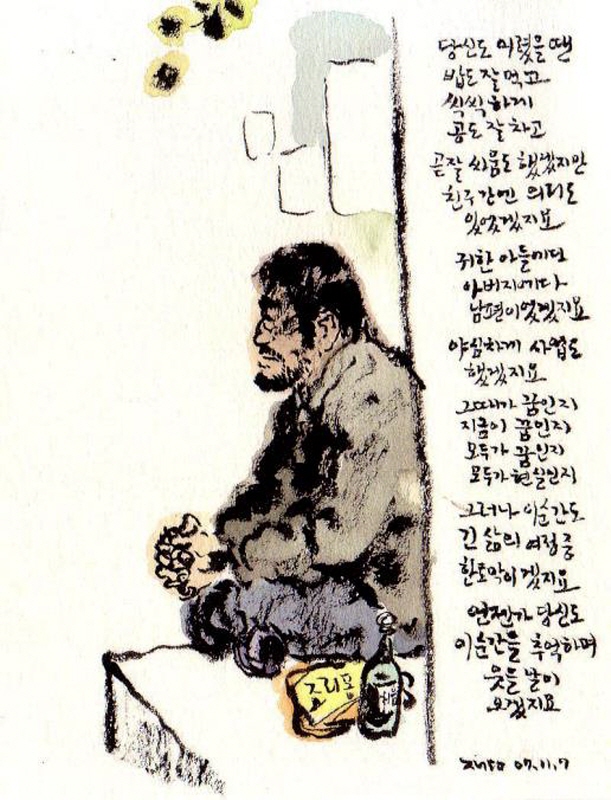 당신도 어렸을 땐
밥도 잘 먹고
씩씩하게
공도 잘 차고
곧잘 싸움도 했겠지만
친구간엔 의리도
있었겠지요
귀한 아들에다
아버지에다
남편이었겠지요
야심하게 사업도
했겠지요
그때가 꿈인지
지금이 꿈인지
모두가 꿈인지
모두가 현실인지
그러나 이순간도
긴 삶의 여정중
한토막이겠지요
언젠가 당신도
이순간을 추억하며
웃을 날이
오겠지요
07.11.7
조리퐁